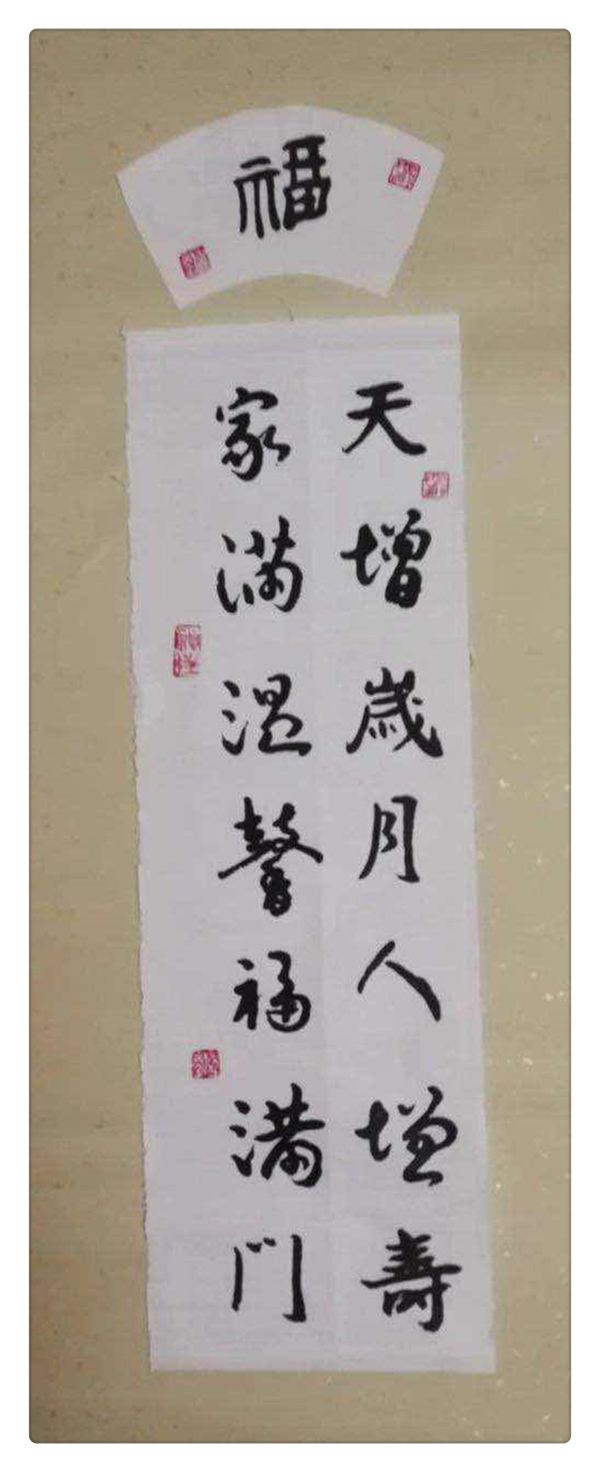 福
天增歲月人增壽
家满温馨福满门